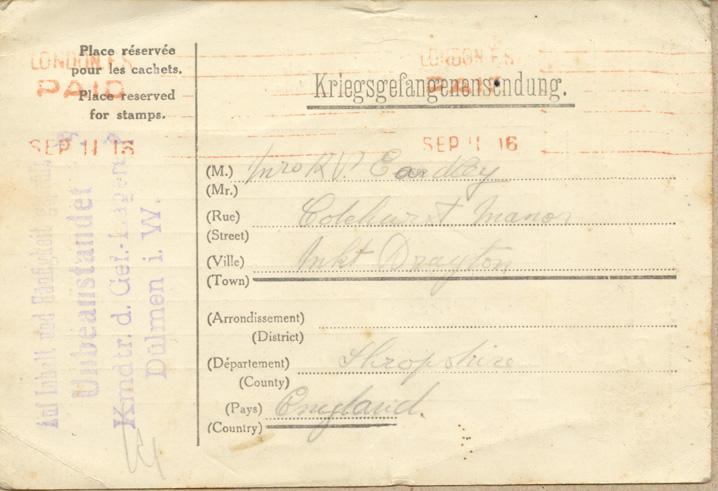 Place réservée
pour les cachets.
Place reserved
for stamps.
LONDON F.S.
PAID
SEP 11 16
LONDON F.S.
PAID
SEP 11 16
Kriegsgefangenensendung.
(M.) Mrs R V Eardley
(Mr.)
(Rue) Colehurst Manor
(Street)
(Ville) Mkt Drayton
(Town)
(Arrondissement)
(District)
(Département) Shropshire
(County)
(Pays) England.
(Country)
Auf Inhalt und
Unbeanstandet
Kmdtr. d. Gef.-Lagers
Dülmen i. W.